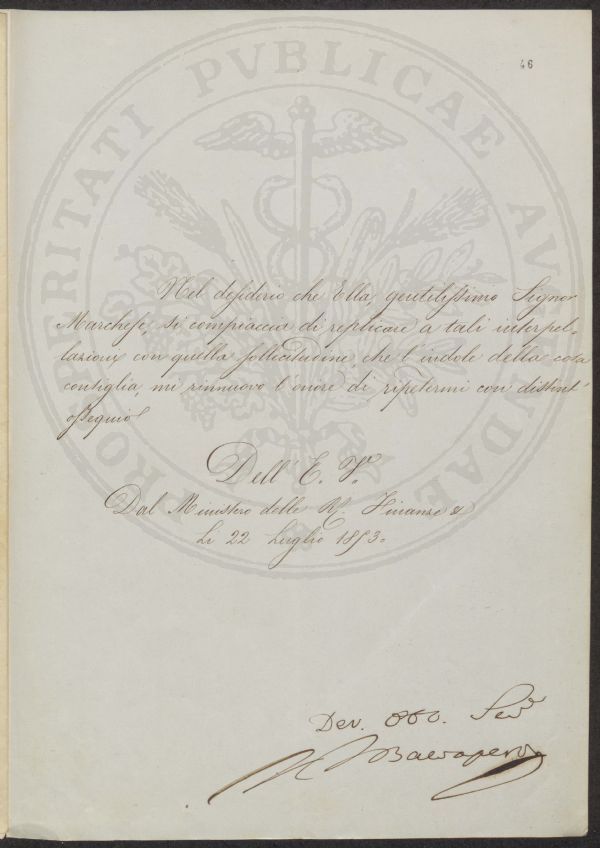 46
PROSPERITATI PVBLICAE AVGENDAE
Nel desiderio che Ella, gentilissimo Signor
Marchese, si compiaccia di replicare a tali interpel-
lazioni con quella sollecitudine, che l'indole della cosa
consiglia, mi rinnuovo l'onore di ripetermi con distint'
ossequio
Dell' E. V.
Dal Ministero delle Rf. Finanze
Li 22 Luglio 1853.
Dev. Obb. Serv